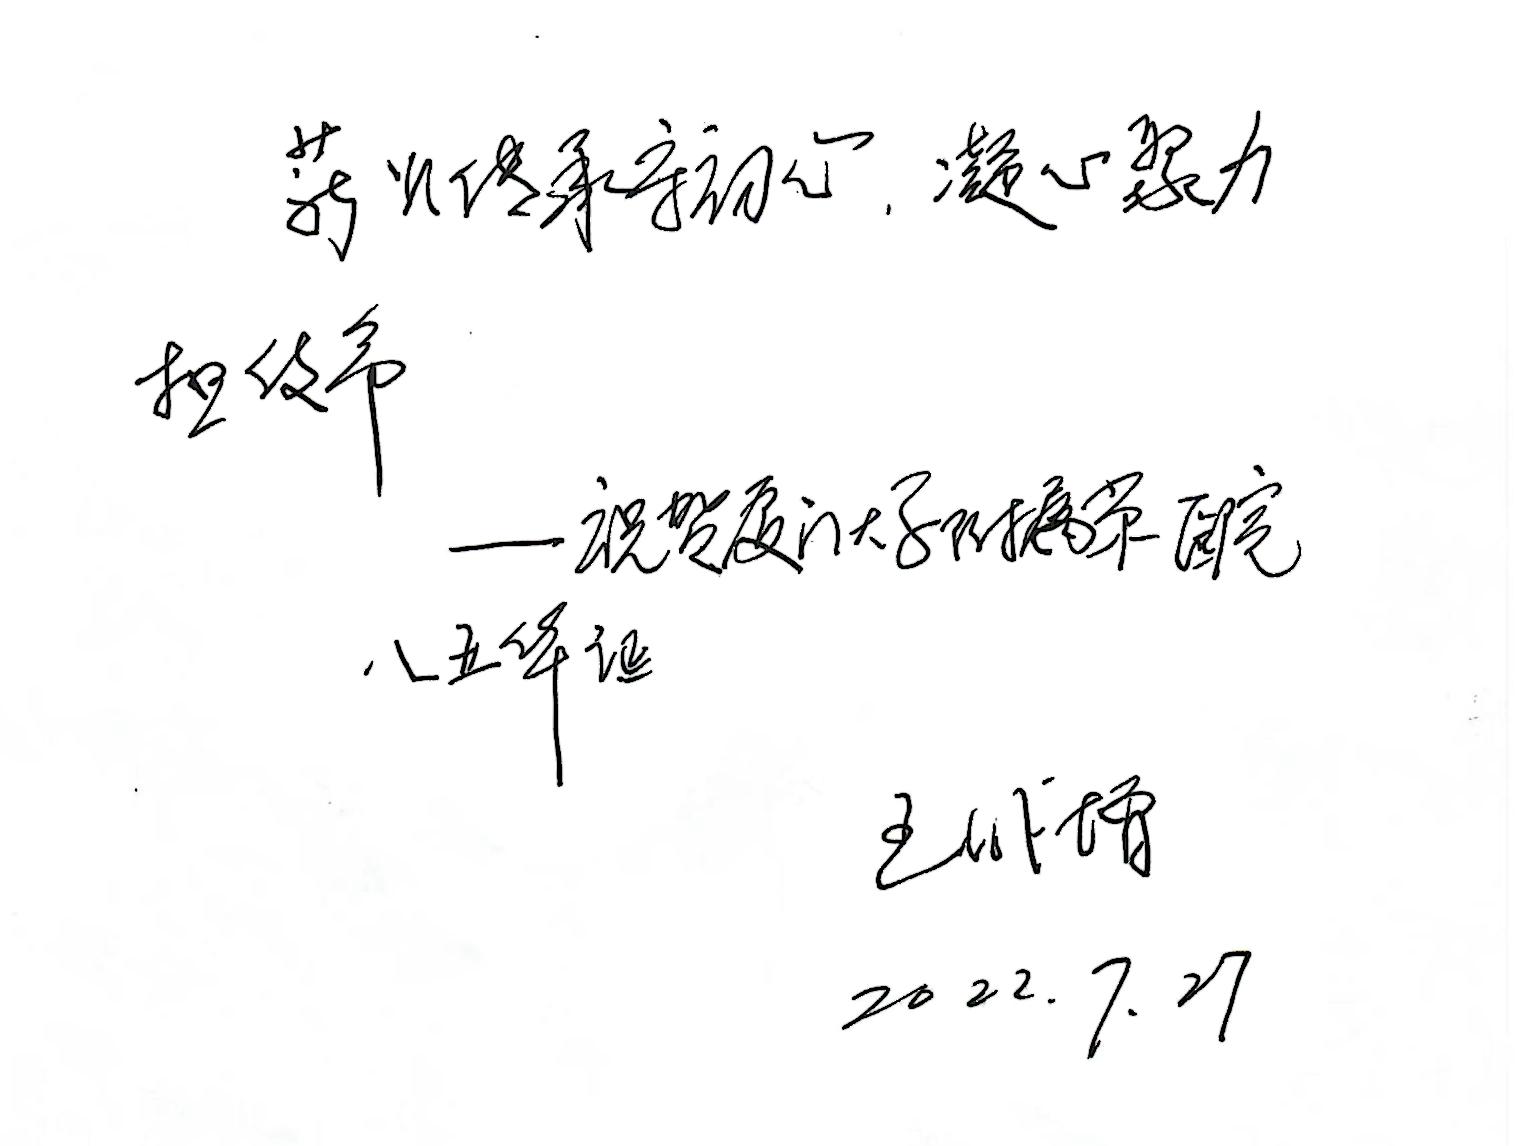 薪火传承守初心,凝心聚力
担使命
——祝贺厦门大学附属第一医院
八五华诞
王 增
2022.7.27